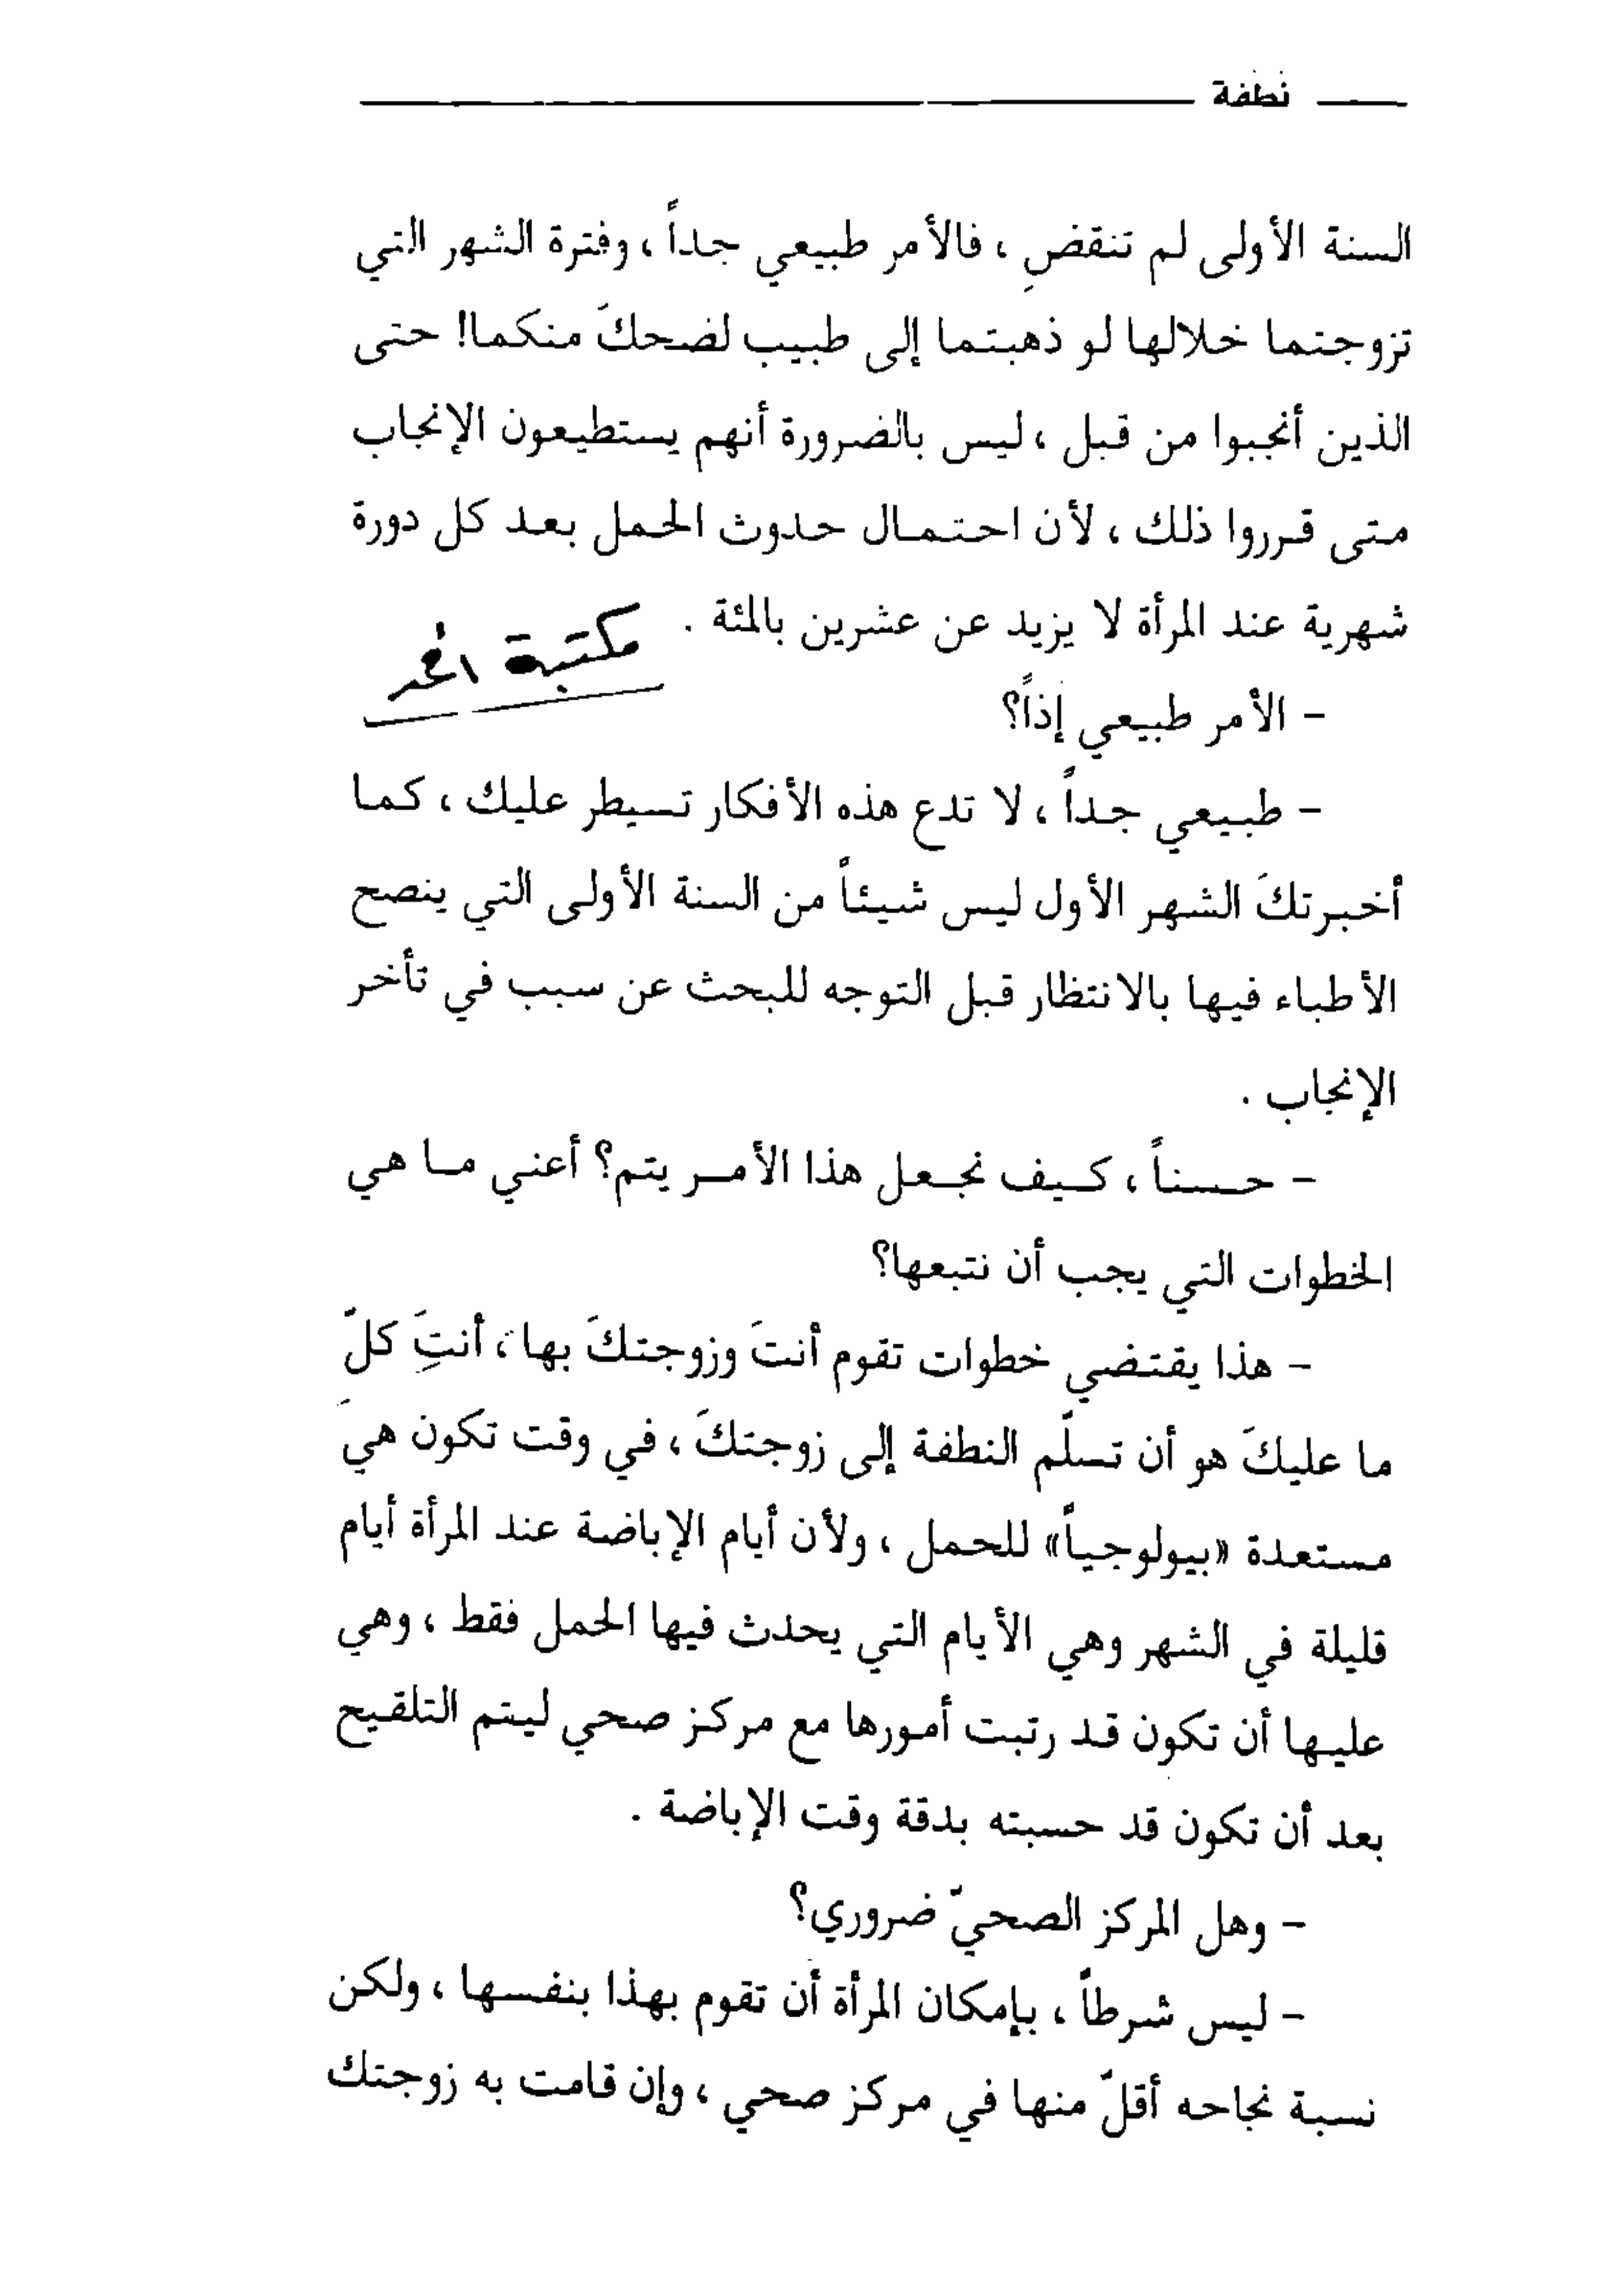 نطفة
السنة الأولى لم تنقضِ ، فالأمر طبيعي جداً ، وفترة الشهر التي
تزوجتما خلالها لو ذهبتما إلى طبيب لضحكَ منكما! حتى
الذين أنجبوا من قبل ، ليس بالضرورة أنهم يستطيعون الإنجاب
متى قرروا ذلك ، لأن احتمال حدوث الحمل بعد كل دورة
شهرية عند المرأة لا يزيد عن عشرين بالمئة .
مكتبة
- الأمر طبيعي إذاً؟
- طبيعي جداً ، لا تدع هذه الأفكار تسيطر عليك ، كما
أخبرتكَ الشهر الأول ليس شيئاً من السنة الأولى التي ينصح
الأطباء فيها بالانتظار قبل التوجه للبحث عن سبب في تأخر
الإنجاب .
- حسناً ، كيف نجعل هذا الأمر يتم؟ أعني ما هي
الخطوات التي يجب أن نتبعها؟
- هذا يقتضي خطوات تقوم أنتَ وزوجتكَ بها ، أنتَِ كلّ
ما عليكَ هو أن تسلّم النطفة إلى زوجتكَ ، في وقت تكون هيَ
مستعدة «بيولوجياً» للحمل ، ولأن أيام الإباضة عند المرأة أيام
قليلة في الشهر وهي الأيام التي يحدث فيها الحمل فقط ، وهي
عليها أن تكون قد رتبت أمورها مع مركز صحي ليتم التلقيح
بعد أن تكون قد حسبته بدقة وقت الإباضة .
- وهل المركز الصحيّ ضروري؟
- ليس شرطاً ، بإمكان المرأة أن تقوم بهذا بنفسها ، ولكن
نسبة نجاحه أقلّ منها في مركز صحي ، وإن قامت به زوجتك